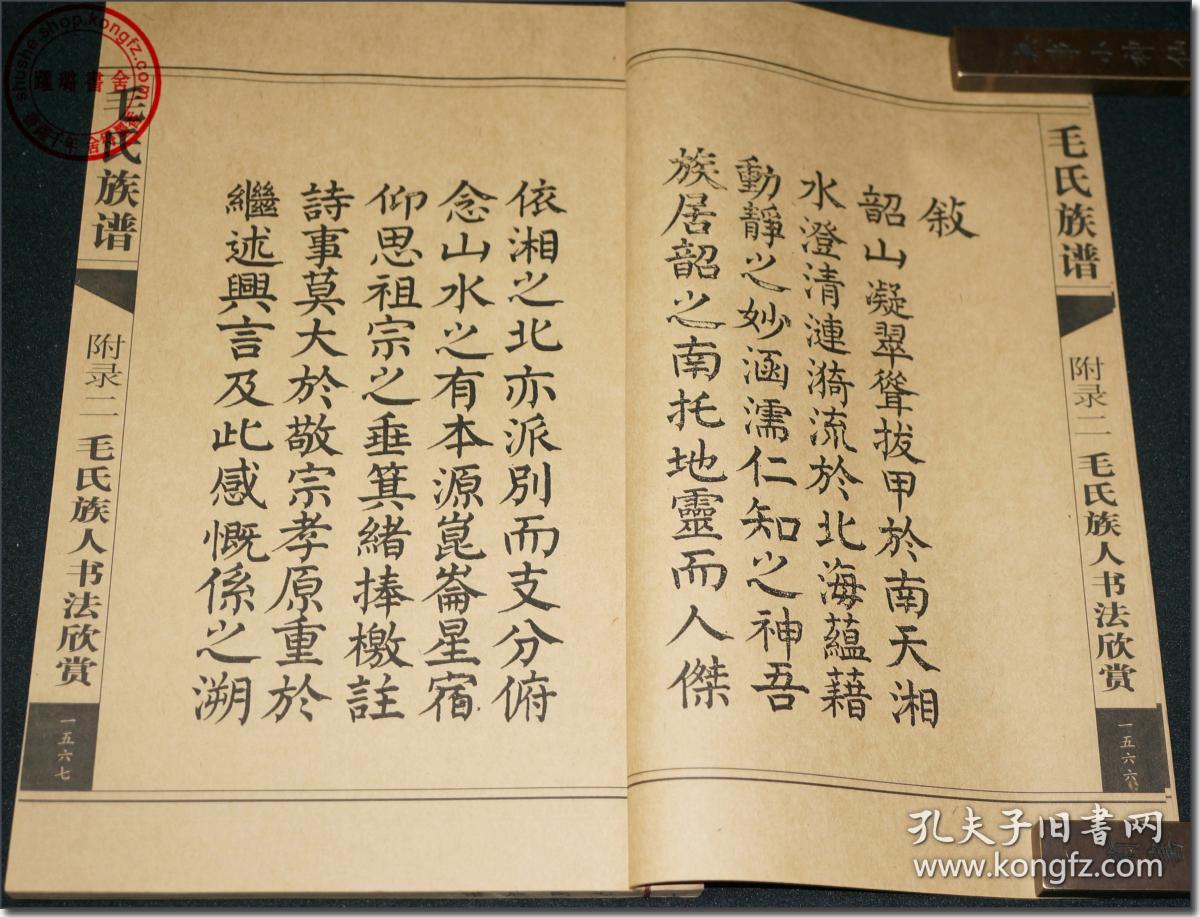 毛氏族谱
附录二 毛氏族人书法欣赏
一五六六
敍
韶山凝翠聳拔甲於南天湘
水澄清漣漪流於北海蘊藉
動靜之妙涵濡仁知之神吾
族居韶之南托地靈而人傑
依湘之北亦派別而支分俯
念山水之有本源崑崙星宿
仰思祖宗之垂箕緒捧檄註
詩事莫大於敬宗孝原重於
繼述興言及此感慨係之溯
毛氏族谱
附录二 毛氏族人书法欣赏
一五六七
shushe.shop.kongfz.com
書舍
孔夫子旧书网
www.kongfz.com